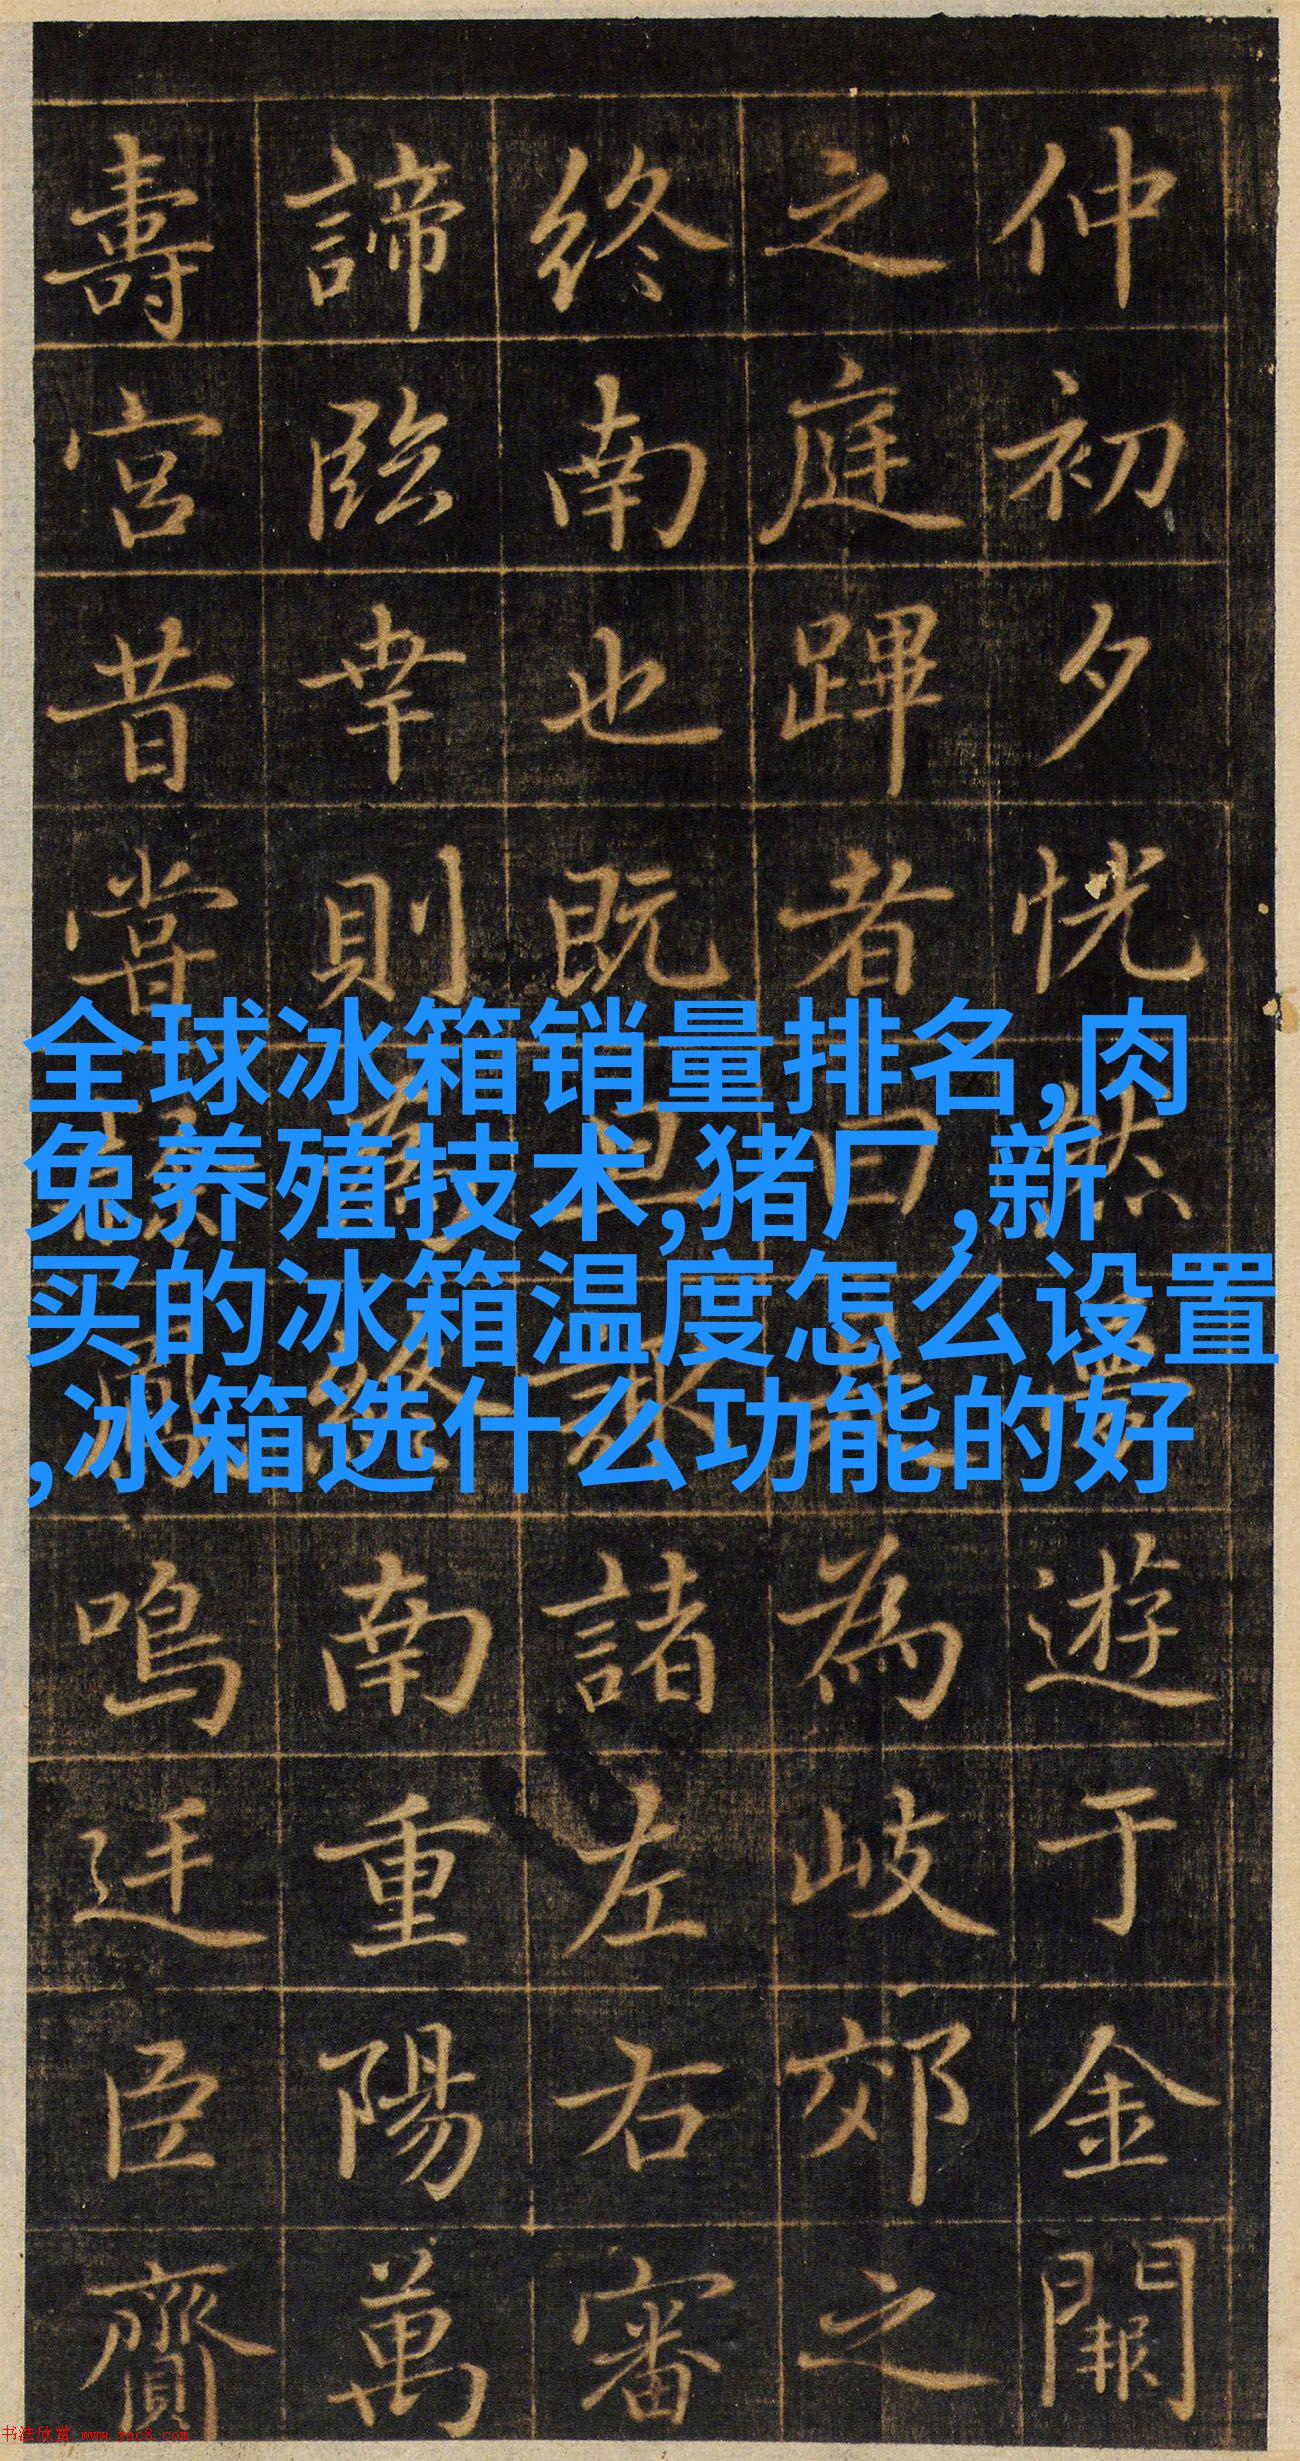 仲初夕恍然遊于金闕
之庭蹕者曰為岐郊之
終南也既且諸左右審
諦臨幸則終南重陽萬
壽宮昔嘗鳳鳴廷臣齎
全球冰箱销量排名,肉
兔养殖技术,猪厂,新
买的冰箱温度怎么设置
,冰箱选什么功能的好
书法欣赏 www.yac8.com